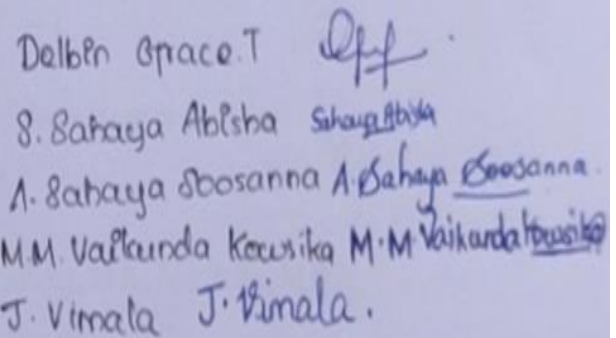 Delbin Grace.T
S. Sahaya Abisha Sahaya Abisha
A. Sahaya Soosanna A. Sahaya Soosanna
M.M. Vaikunda Kowsika M.M Vaikunda Kowsika
J. Vimala J. Vimala.